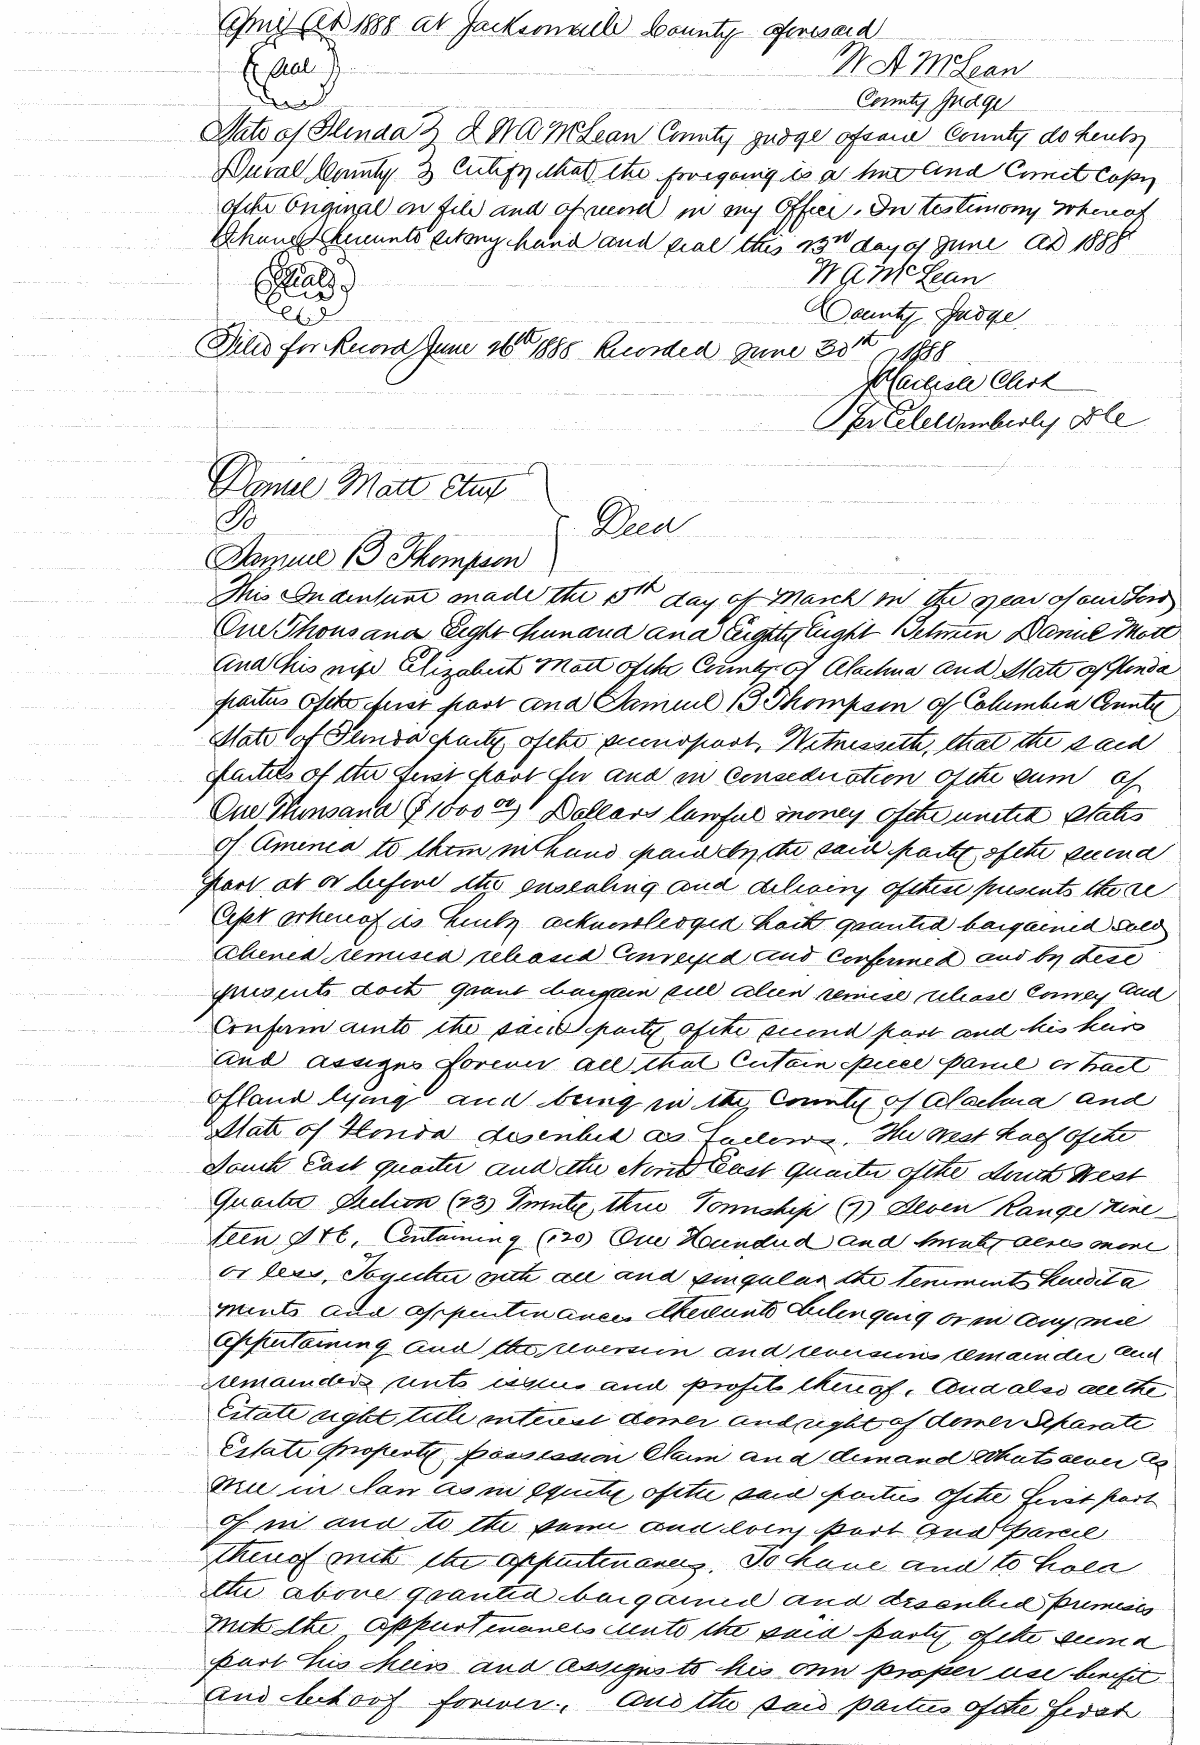 April AD 1888 at Jacksonville County aforesaid
(Seal)
W A McLean
County Judge
State of Florida } I W A McLean County judge of said County do hereby
Duval County } Certify that the foregoing is a true and Correct Copy
of the Original on file and of record in my Office. In testimony whereof
I have hereunto set my hand and seal this 23rd day of June AD 1888
(Seal)
W A McLean
County Judge
Filed for Record June 26th 1888 Recorded June 30th 1888
Clerk
Per Wimberly DC
Daniel Mott Etux
To
Deed
Samuel B Thompson
This Indenture made the 5th day of March in the year of our Lord
One Thousand Eight hundred and Eighty Eight Between Daniel Mott
and his wife Elizabeth Mott of the County of Alachua and State of Florida
parties of the first part and Samuel B Thompson of Columbia County
State of Florida party of the second part, Witnesseth, that the said
parties of the first part for and in consederation of the sum of
One Thousand ($1000 00) Dollars lawful money of the united States
of America to them in hand paid by the said party of the second
part at or before the ensealing and delivery of these presents the re
ceipt whereof is hereby acknowledged hath granted bargained sold
aliened remised released Conveyed and confirmed and by these
presents doth grant bargain sell alien remise release Convey and
Confirm unto the said party of the second part and his heirs
and assigns forever all that Certain piece parcel or tract
of land lying and being in the County of Alachua and
State of Florida described as follows. The West half of the
South East quarter and the North East quarter of the South West
Quarter Section (23) Twenty three Township (7) Seven Range nine-
teen S+E, Containing (120) One Hundred and twenty acres more
or less, Together with all and singular the tenements heredita
ments and appurtenances thereunto belonging or in any wise
appertaining and the reversion and reversions remainder and
remainders rents issues and profits thereof. And also all the
Estate right title interest dower and right of dower Separate
Estate property possession Claim and demand whatsoever as
well in law as in equity of the said parties of the first part
of in and to the same and every part and parcel
thereof with the appurtenances. To have and to hold
the above granted bargained and described premises
with the appurtenances unto the said party of the second
part his heirs and assigns to his own proper use benefit
and behoof forever. And the said parties of the first